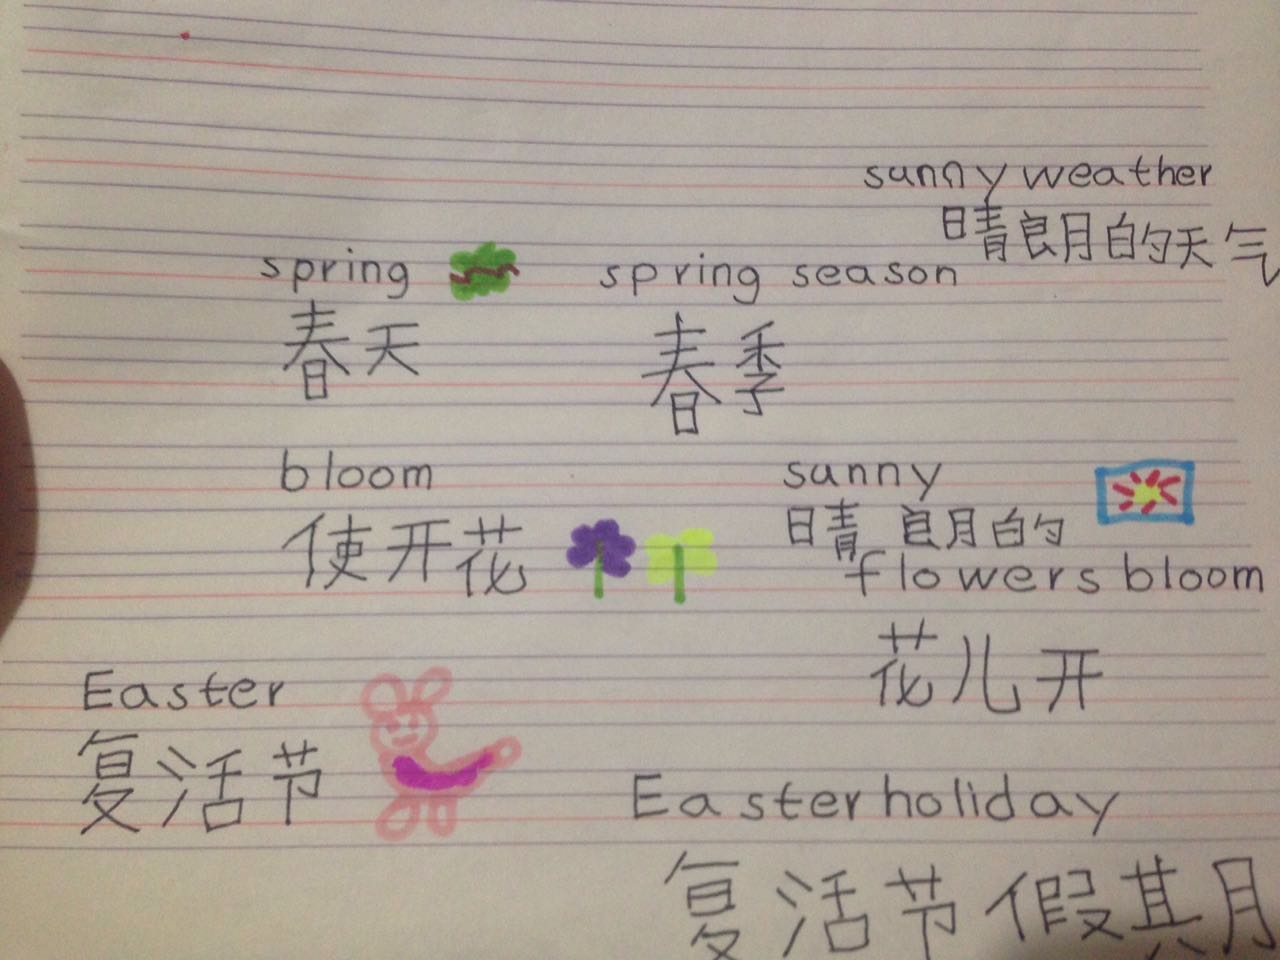 sunny weather
晴朗的天气
spring
春天
spring season
春季
bloom
使开花
sunny
晴朗的
flowers bloom
花儿开
Easter
复活节
Easter holiday
复活节假期